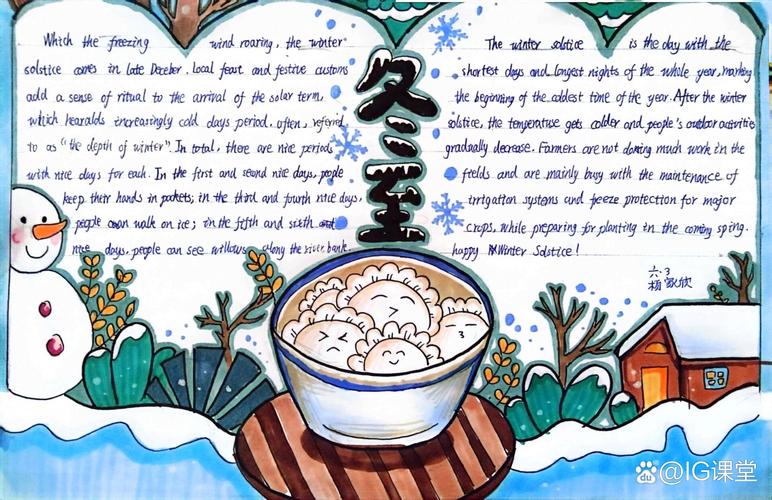 Which the freezing wind roaring, the winter
solstice comes in late Deceber, local feast and festive customs
add a sense of ritual to the arrival of the solar term,
which hearalds increasingly cold days period, often, refered
to as "the depth of winter". In total, there are nice periods
with nice days for each. In the first and seond nice days, people
keep their hands in pockets; in the third and fourth nice days,
people can walk on ice; in the fifth and sixth
nice days, people can see willows along the river bank.
冬至
The winter solstice is the day with the
shortest days and longest nights of the whole year, marking
the beginning of the coldest time of the year. After the winter
solstice, the temperature gets colder and people's outdoor activities
gradually decrease. Farmers are not doming much work in the
fields and are mainly busy with the maintenance of
irrigation systoms and freeze protection for major
crops, while preparing for planting in the coming sping.
happy Winter Solstice!
六.3
杨 欣
Baidu @IG课堂